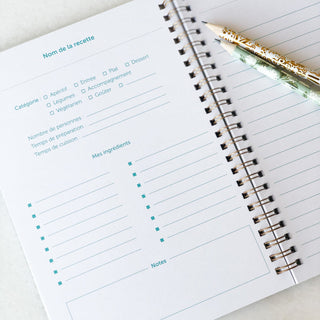 Nom de la recette
Catégorie : Apéritif Entrée Plat Dessert
Légumes Accompagnement
Végétarien Goûter
Nombre de personnes
Temps de préparation
Temps de cuisson
Mes ingrédients
Notes